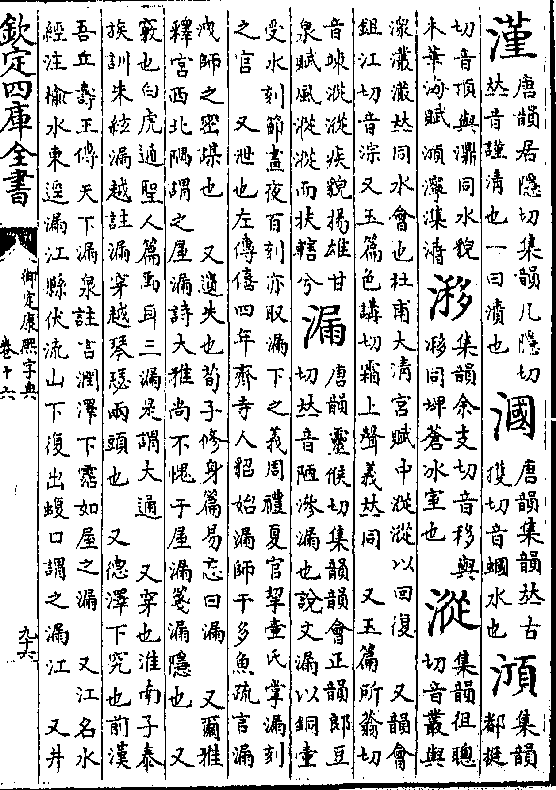 漌唐韻居隱切集韻几隱切
𠀤音謹清也一曰瀆也
漍唐韻集韻𠀤古
獲切音蟈水也
㴿集韻都挺
切音頂與濎同水貌
木華海賦㴿濘潗㴔
集韻余支切音移與
同埤蒼冰室也
漎集韻徂聰
切音叢與
潨灇灇𠀤同水會也杜甫大清宮賦中漎漎以回復 又韻會
鉏江切音淙又玉篇色講切霜上聲義𠀤同 又玉篇所翁切
音 漎漎疾貌揚雄甘
泉賦風漎漎而扶轄兮
漏唐韻靈候切集韻韻會正韻郎豆
切𠀤音陋滲漏也說文漏以銅壺
受水刻節晝夜百刻亦取漏下之義周禮夏官挈壺氏掌漏刻
之官 又泄也左傳僖四年齊寺人貂始漏師于多魚疏言漏
洩師之密謀也 又遺失也荀子修身篇易忘曰漏 又爾雅
釋宮西北隅謂之屋漏詩大雅尚不愧于屋漏箋漏隱也 又
竅也白虎通聖人篇禹耳三漏是謂大通 又穿也淮南子泰
族訓朱絃漏越註漏穿越琴瑟兩頭也 又德澤下究也前漢
吾丘壽王傳天下漏泉註言潤澤下霑如屋之漏 又江名水
經注榆水東逕漏江縣伏流山下復出蝮口謂之漏江 又井
欽定四庫全書
御定康熙字典
卷十六
九十六